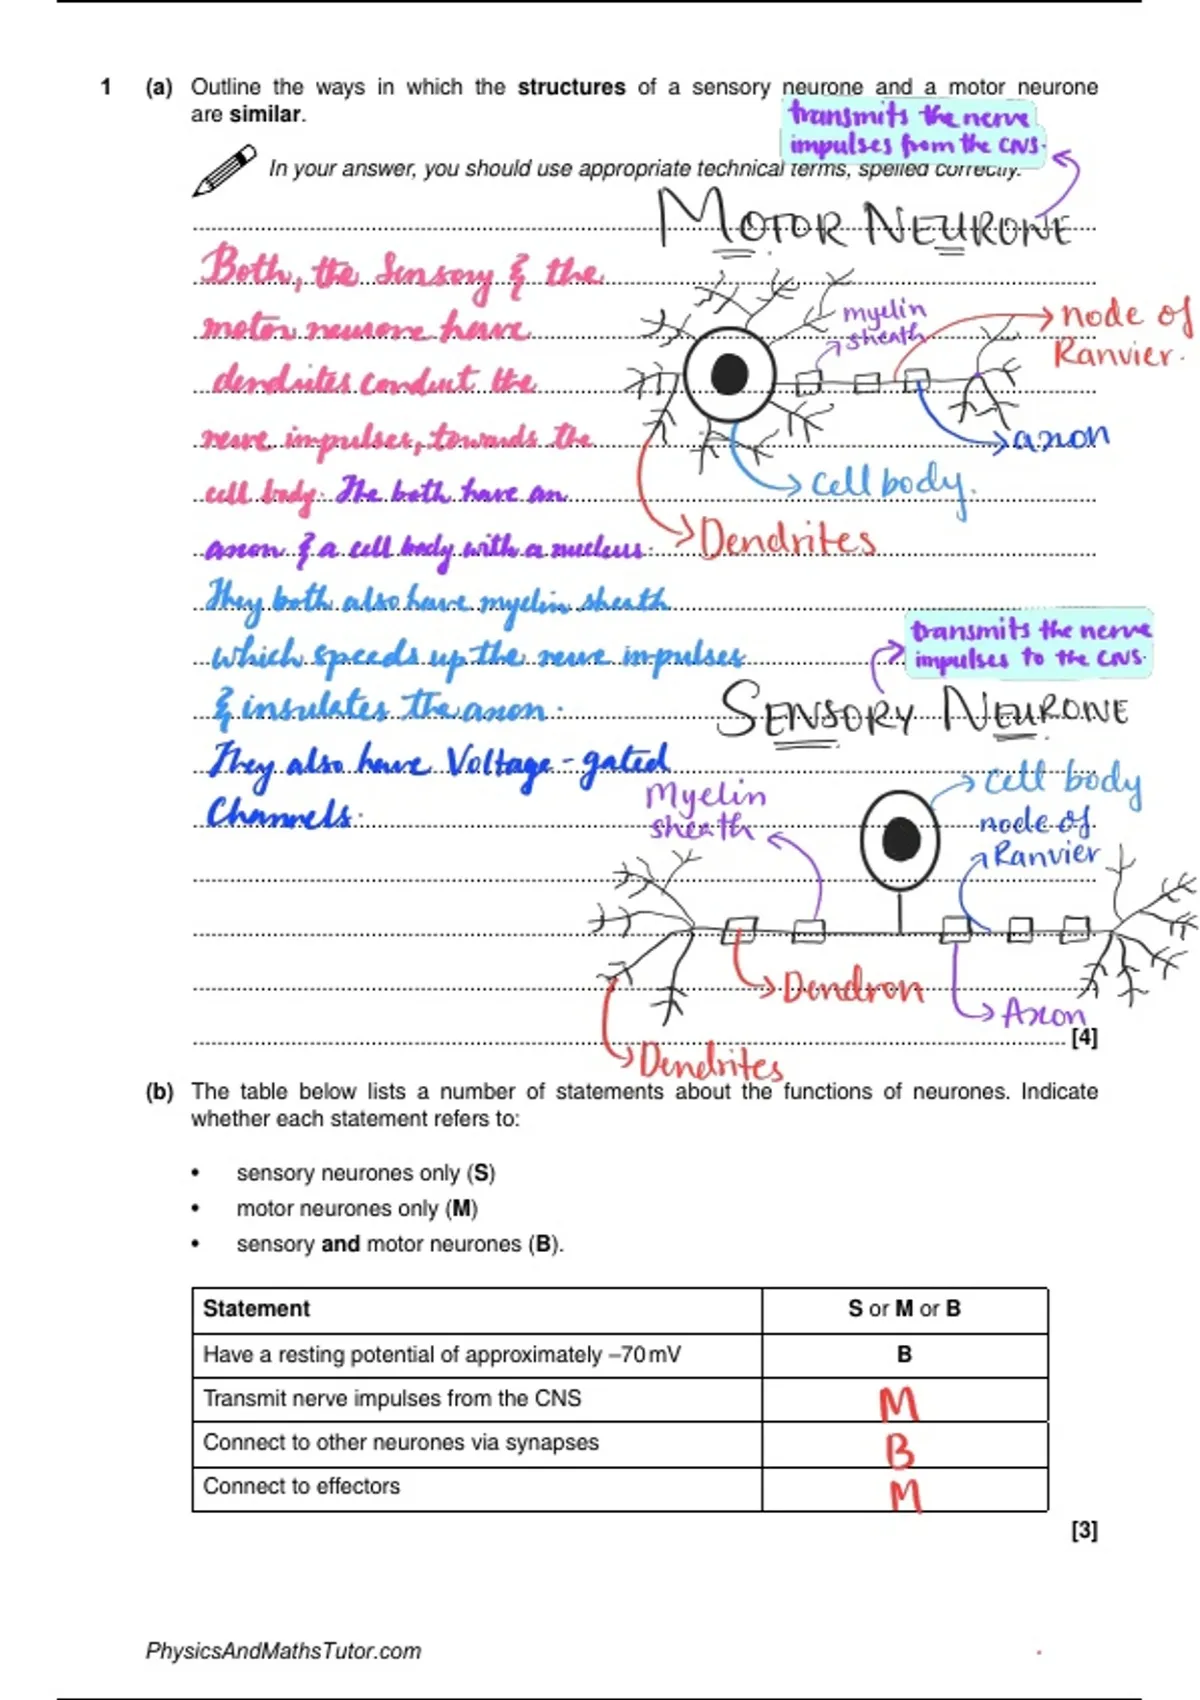 1 (a) Outline the ways in which the structures of a sensory neurone and a motor neurone
are similar.
transmits the nerve
impulses from the CNS.
In your answer, you should use appropriate technical terms, spelled correctly.
MOTOR NEURONE
Both, the Sensory & the
motor neurone have
dendrites conduct the
nerve impulses, towards the
cell body. The both have an
axon & a cell body with a nucleus.
They both also have myelin sheath
which speeds up the nerve impulses
& insulates the axon.
They also have Voltage-gated
Channels.
myelin
sheath
node of
Ranvier.
axon
cell body.
Dendrites
transmits the nerve
impulses to the CNS.
SENSORY NEURONE
Myelin
sheath
cell body
node of
Ranvier
Dendron
Axon
Dendrites
[4]
(b) The table below lists a number of statements about the functions of neurones. Indicate
whether each statement refers to:
• sensory neurones only (S)
• motor neurones only (M)
• sensory and motor neurones (B).
Statement S or M or B
Have a resting potential of approximately –70 mV B
Transmit nerve impulses from the CNS M
Connect to other neurones via synapses B
Connect to effectors M
[3]
PhysicsAndMathsTutor.com